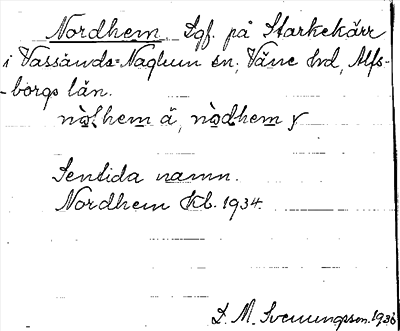 Nordhem Lgf. på Starkekärr
i Vassända-Naglum sn, Väne hd, Älfs-
-borgs län.
nò̱lhem ä, nò̱dhem y
Sentida namn.
Nordhem Kb. 1934.
D. M. Svenungsson. 1936